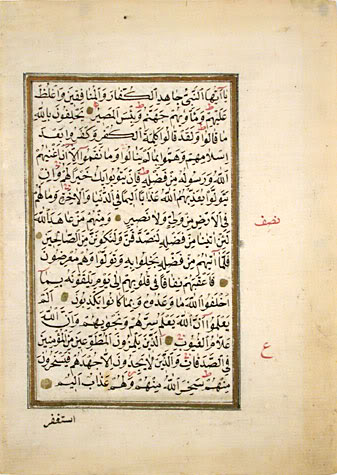 يا ايها النبي جاهد الكفار والمنافقين واغلظ
عليهم وماويهم جهنم وبئس المصير يحلفون بالله
ما قالوا ولقد قالوا كلمة الكفر وكفروا بعد
اسلامهم وهموا بما لم ينالوا وما نقموا الا ان اغنيهم
الله ورسوله من فضله فان يتوبوا يك خيرا لهم وان
يتولوا يعذبهم الله عذابا اليما في الدنيا والاخرة وما لهم
في الارض من ولي ولا نصير ومنهم من عاهد الله
لئن اتينا من فضله لنصدقن ولنكونن من الصالحين
فلما اتيهم من فضله بخلوا به وتولوا وهم معرضون
فاعقبهم نفاقا في قلوبهم الى يوم يلقونه بما
اخلفوا الله ما وعدوه وبما كانوا يكذبون الم
يعلموا ان الله يعلم سرهم ونجويهم وان الله
علام الغيوب الذين يلمزون المطوعين من المؤمنين
في الصدقات والذين لا يجدون الا جهدهم فيسخرون
منهم سخر الله منهم ولهم عذاب اليم
نصف
ع
استغفر